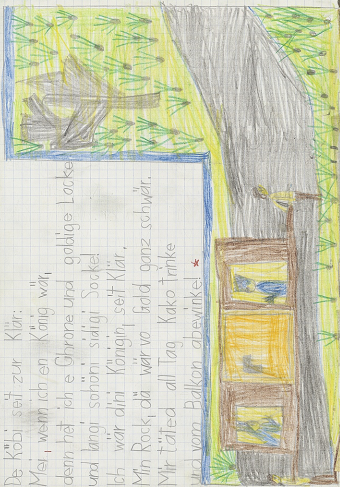 De Köbi seit zur Klär:
Mei, wenn ich en König wär,
denn het ich e Chrone und goldige Locke
und langi sonöni sidigi Socke.
Ich wär dini Königin, seit Klär,
Min Rock, dä wär vo Gold ganz schwär.
Mir täted all Tag Kako trinke
und vom Balkon abewinke.